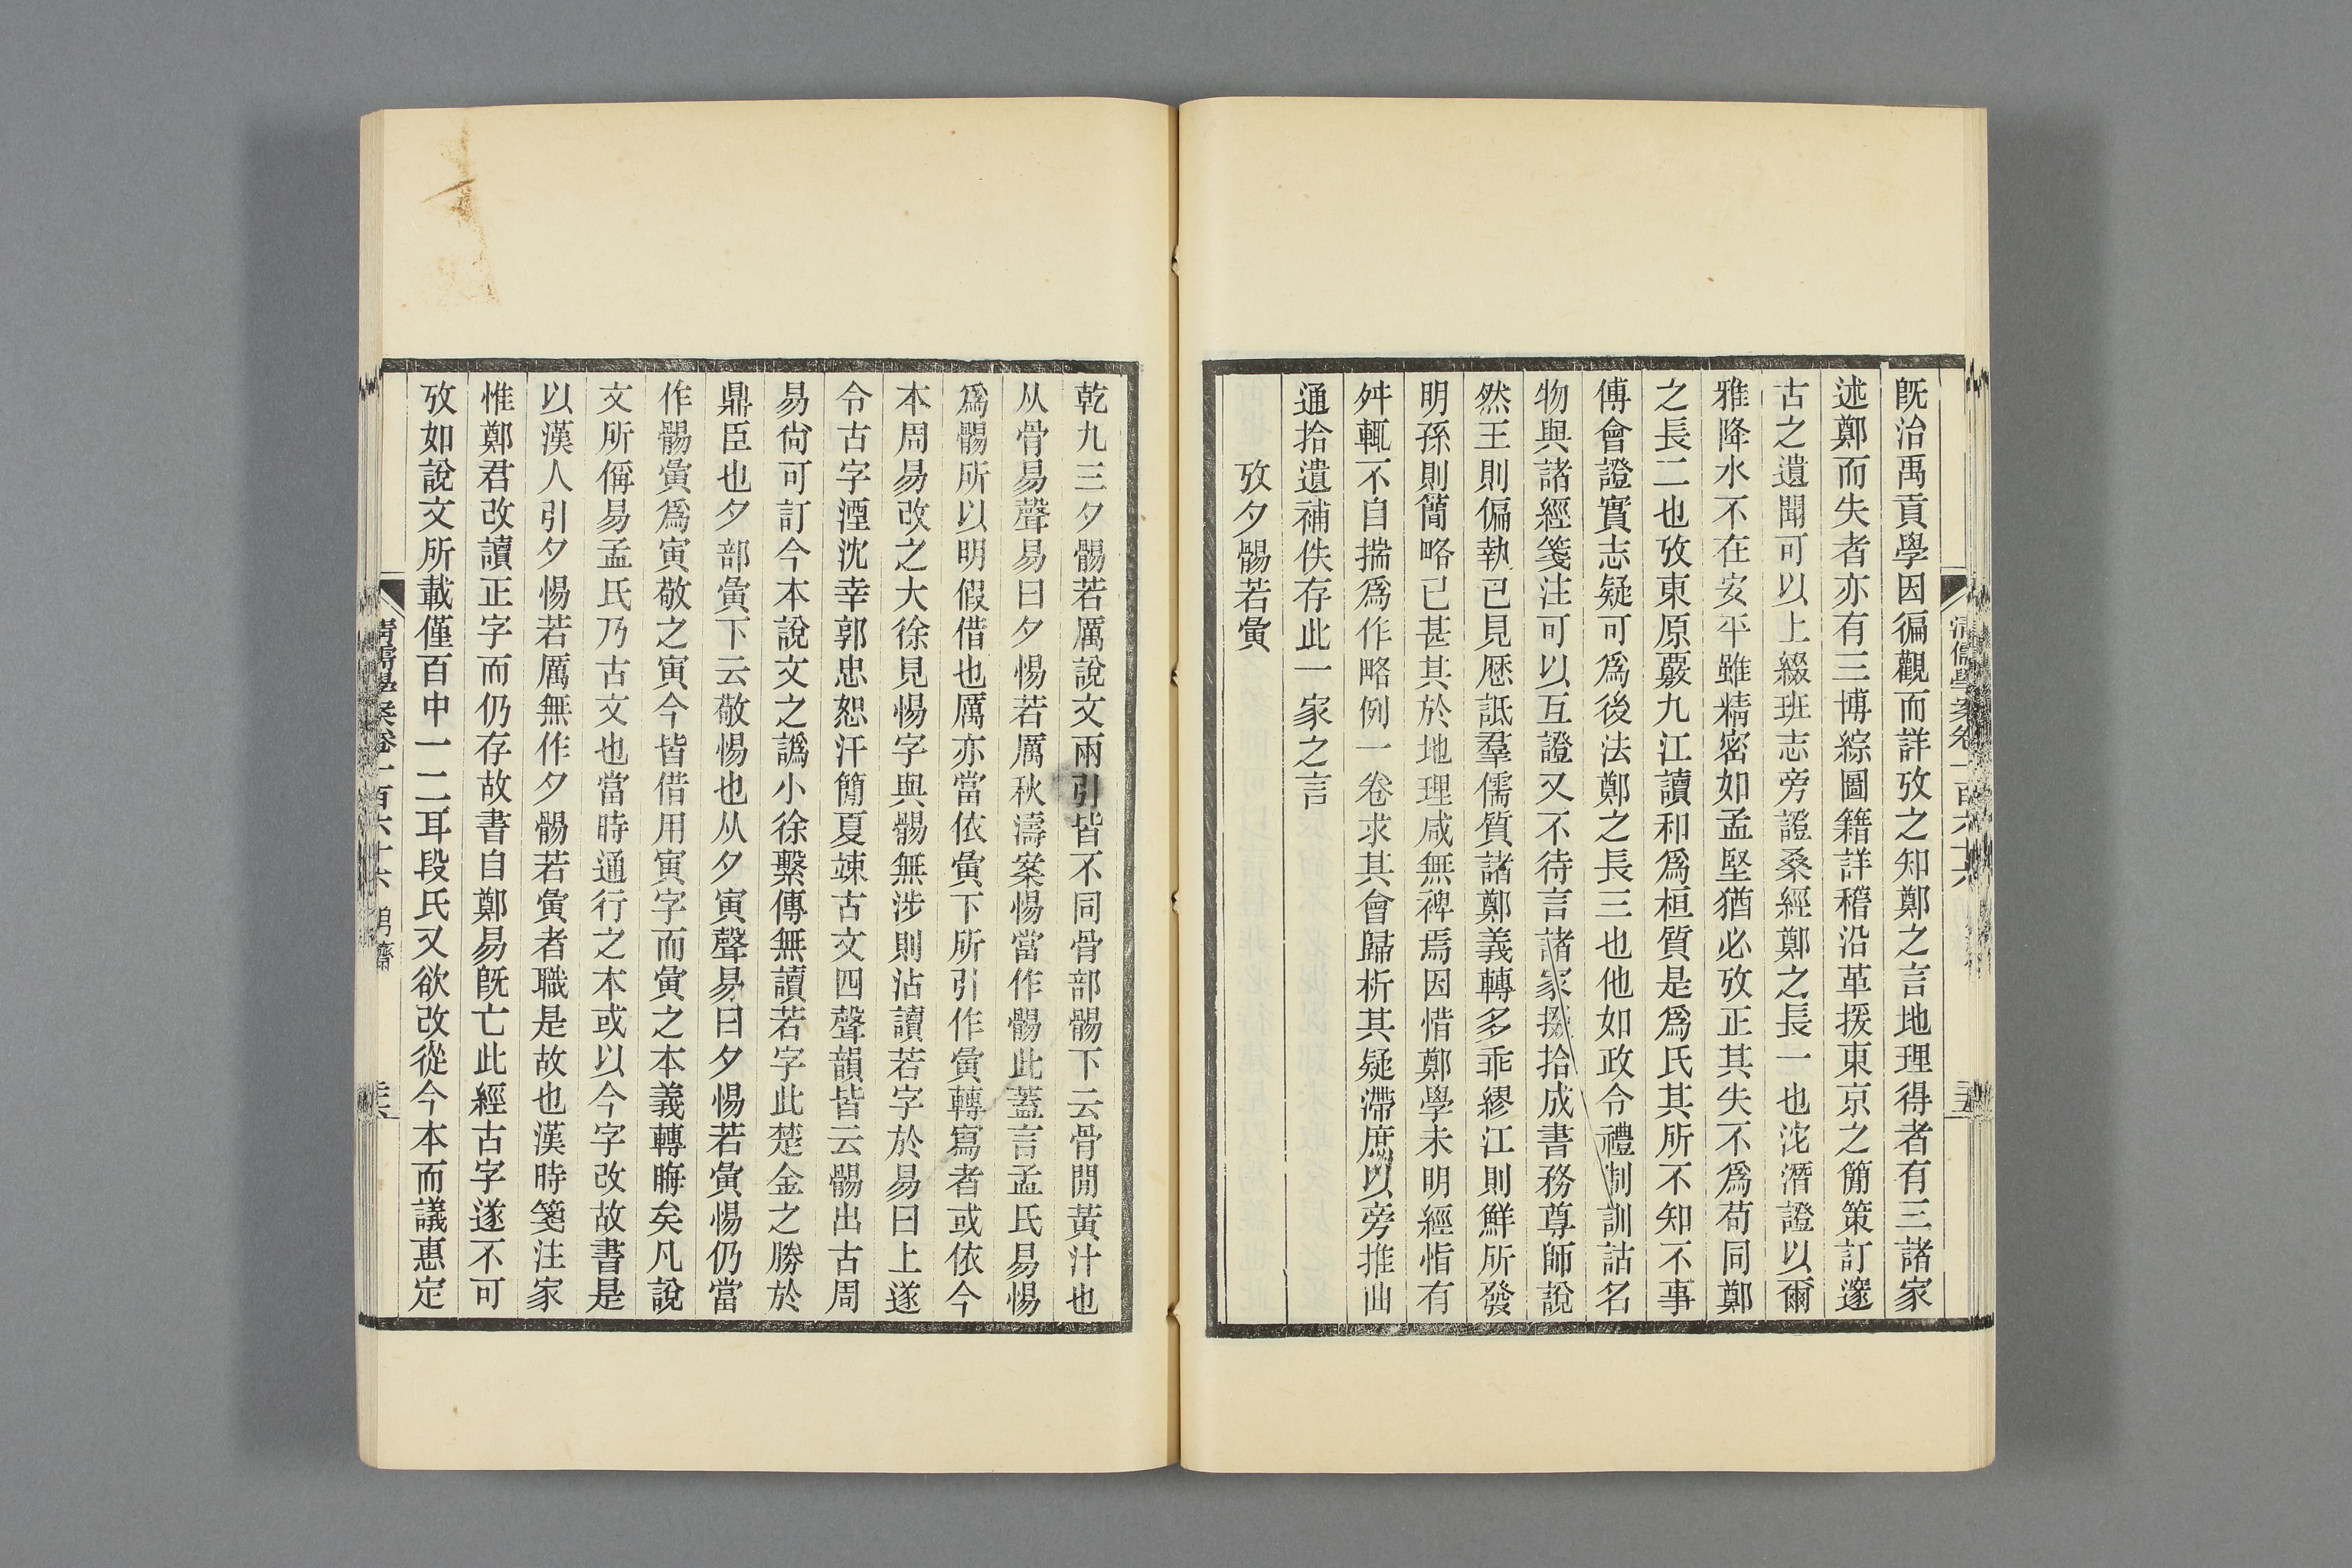 既治禹貢學因徧觀而詳攷之知鄭之言地理得者有三諸家
述鄭而失者亦有三博綜圖籍詳稽沿革援東京之簡策訂邃
古之遺聞可以上綴班志旁證桑經鄭之長一也沱潛證以爾
雅降水不在安平雖精密如孟堅猶必攷正其失不爲苟同鄭
之長二也攷東原覈九江讀和爲桓質是爲氏其所不知不事
傅會證實志疑可爲後法鄭之長三也他如政令禮制訓詁名
物與諸經箋注可以互證又不待言諸家掇拾成書務尊師說
然王則偏執已見歷詆羣儒質諸鄭義轉多乖繆江則鮮所發
明孫則簡略已甚其於地理咸無裨焉因惜鄭學未明經恉有
舛輒不自揣爲作略例一卷求其會歸析其疑滯庶以旁推曲
通拾遺補佚存此一家之言
攷夕𩩘若夤
乾九三夕𩩘若厲說文兩引皆不同骨部𩩘下云骨閒黃汁也
从骨易聲易曰夕惕若厲秋濤案惕當作𩩘此蓋言孟氏易惕
爲𩩘所以明假借也厲亦當依夤下所引作夤轉寫者或依今
本周易改之大徐見惕字與𩩘無涉則沾讀若字於易曰上遂
令古字湮沈幸郭忠恕汗簡夏竦古文四聲韻皆云𩩘出古周
易尙可訂今本說文之譌小徐繫傳無讀若字此楚金之勝於
鼎臣也夕部夤下云敬惕也从夕寅聲易曰夕惕若夤惕仍當
作𩩘夤爲寅敬之寅今皆借用寅字而夤之本義轉晦矣凡說
文所偁易孟氏乃古文也當時通行之本或以今字改故書是
以漢人引夕惕若厲無作夕𩩘若夤者職是故也漢時箋注家
惟鄭君改讀正字而仍存故書自鄭易旣亡此經古字遂不可
攷如說文所載僅百中一二耳段氏又欲改從今本而議惠定